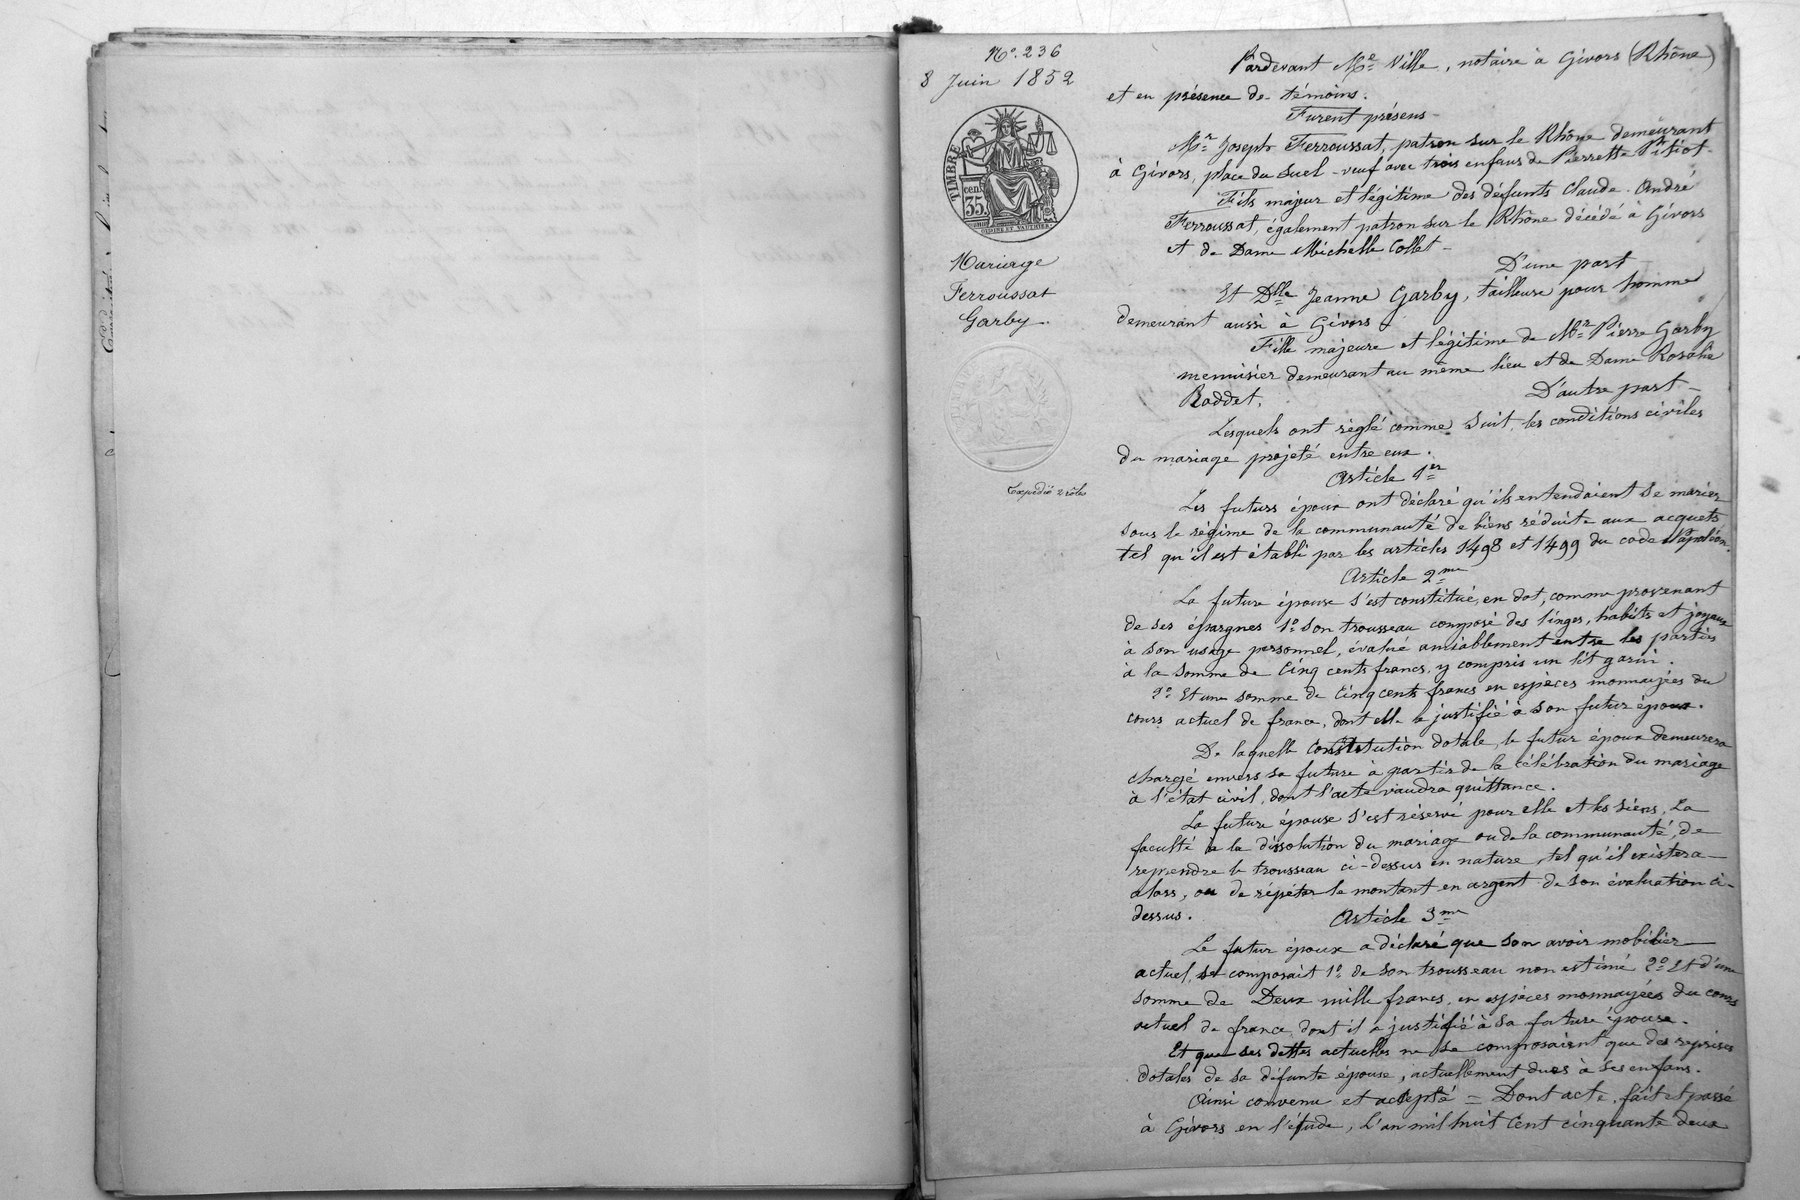 N.° 236
8 Juin 1852
TIMBRE
cen.
35.
Mariage
Ferroussat
Garby.
Expédié 2 rôles
Pardevant Me Ville, notaire à Givors (Rhône)
et en présence de témoins.
Furent présens
Mr Joseph Ferroussat, patron sur le Rhône demeurant
à Givors, place du Suel - veuf avec trois enfans de Pierrette Pitiot.
Fils majeur et légitime des défunts Claude-André
Ferroussat, également patron sur le Rhône décédé à Givors
et de Dame Michelle Collet -
D'une part
Et Dlle Jeanne Garby, tailleuse pour homme
demeurant aussi à Givors
Fille majeure et légitime de Mr Pierre Garby
menuisier demeurant au même lieu et de Dame Rosalie
Roddet.
D'autre part -
Lesquels ont réglé comme suit, les conditions civiles
du mariage projeté entre eux.
Article 1er
Les futurs époux ont déclaré qu'ils entendaient se marier
sous le régime de la communauté de biens réduite aux acquets
tel qu'il est établi par les articles 1498 et 1499 du code Napoléon.
Article 2me
La future épouse s'est constitué, en dot, comme provenant
de ses épargnes 1° son trousseau composé des linges, habits et joyaux
à son usage personnel, évalué amiablement entre les parties
à la somme de Cinq cents francs, y compris un lit garni.
2° Et une somme de Cinq cents francs en espèces monnayées du
cours actuel de france, dont elle a justifié à son futur époux.
De laquelle constitution dotale, le futur époux demeurera
chargé envers sa future à partir de la célébration du mariage
à l'état civil, dont l'acte vaudra quittance.
La future épouse s'est réservé pour elle et les siens, la
faculté à la dissolution du mariage ou de la communauté, de
reprendre le trousseau ci-dessus en nature, tel qu'il existera
alors, ou de répéter le montant en argent de son évaluation ci-
dessus.
Article 3me
Le futur époux a déclaré que son avoir mobilier
actuel, se composait 1° de son trousseau non estimé 2° Et d'une
somme de Deux mille francs, en espèces monnayées du cours
actuel de france, dont il a justifié à sa future épouse.
Et que ses dettes actuelles ne se composaient que des reprises
dotales de sa défunte épouse, actuellement dues à ses enfans.
Ainsi convenu et accepté = Dont acte, fait et passé
à Givors en l'étude, L'an mil huit cent cinquante deux